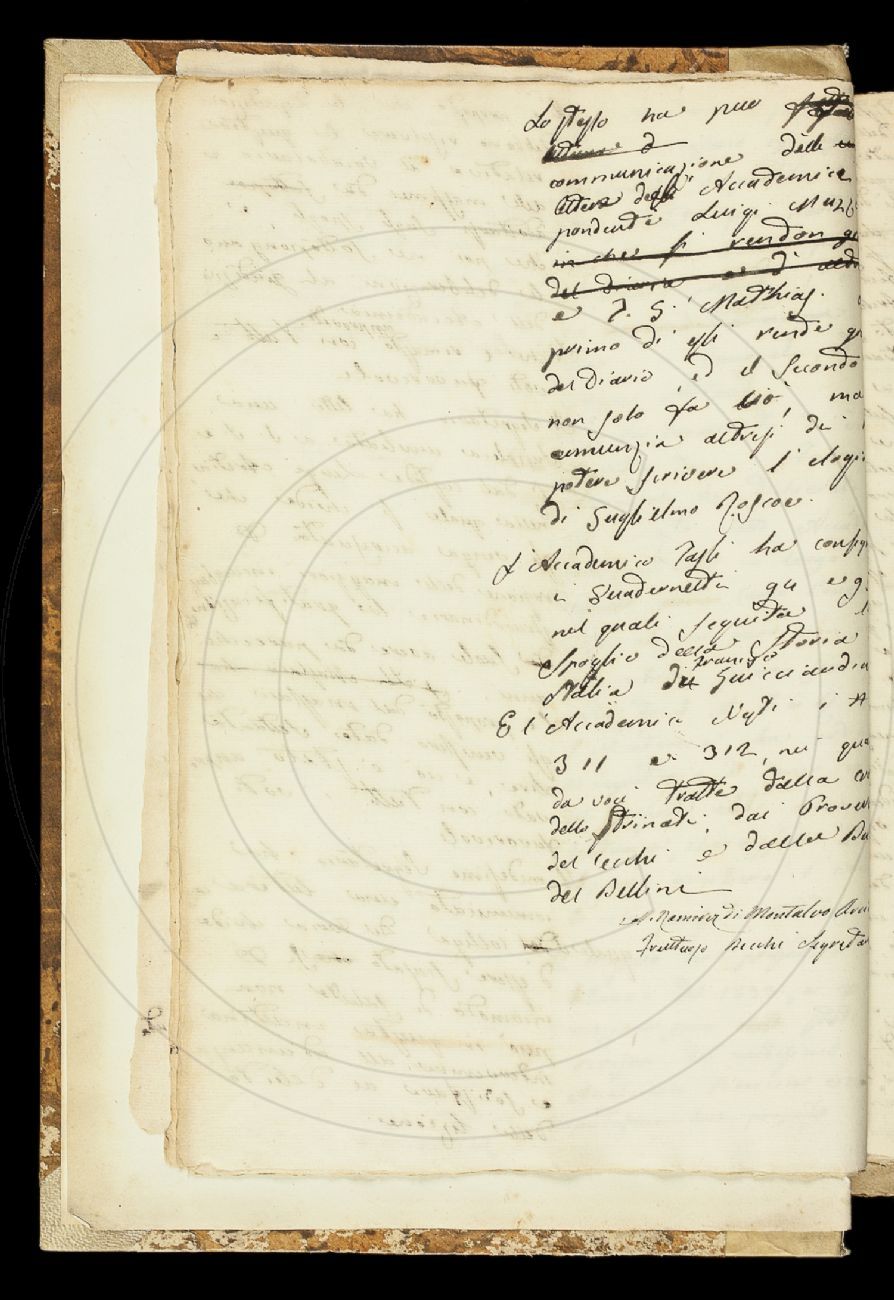 Lo stesso ha pure
communicazione delle
lettere degli Accademici
pondenti Luigi Muzzi
in che si rendon gr
del Diario e d'altr
e T. G. Mathias.
primo di essi rende gr
del Diario, ed il Secondo
non solo fa ciò, ma
annunzia altresì di
potere scrivere l'elogi
di Guglielmo Roscoe.
L'Accademico Tassi ha conseg
i Quadernetti qu e q
nel quali seguita l
Spoglio della Storia
Italia di Francesco Guicciardin
E l'Accademico Nesti i
311 e 312, nei qua
da voci tratte dalla
dello Strinati, dai Prover
del Cecchi e dalla Bu
del Bellini
A. Ramirez di Montalvo Arci
Fruttuoso Becchi Segretar